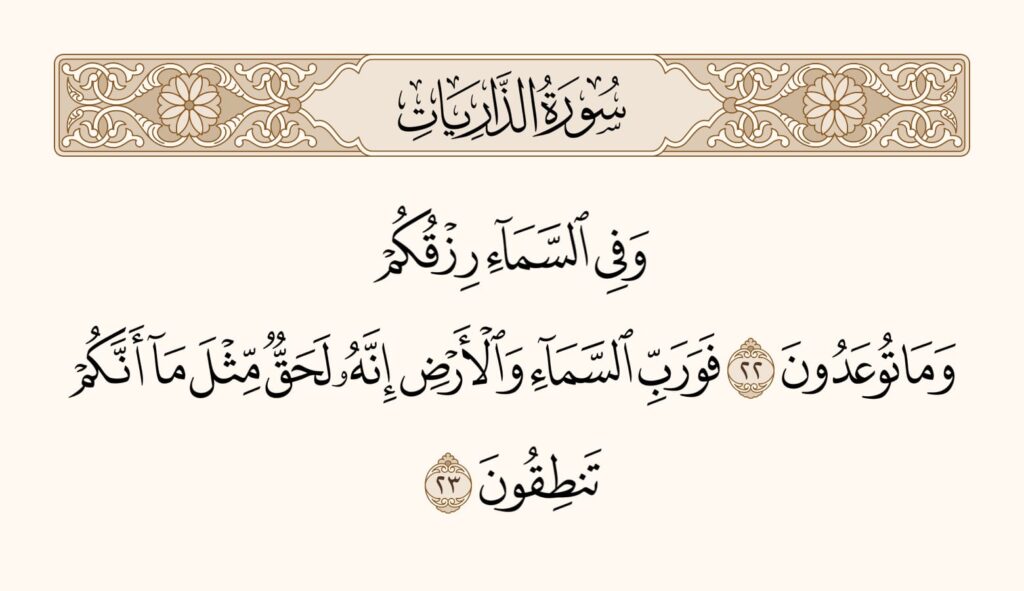 سُورَةُ الذَّارِيَاتِ
وَفِي ٱلسَّمَآءِ رِزۡقُكُمۡ
وَمَا تُوعَدُونَ ٢٢ فَوَرَبِّ ٱلسَّمَآءِ وَٱلۡأَرۡضِ إِنَّهُۥ لَحَقّٞ مِّثۡلَ مَآ أَنَّكُمۡ
تَنطِقُونَ ٢٣